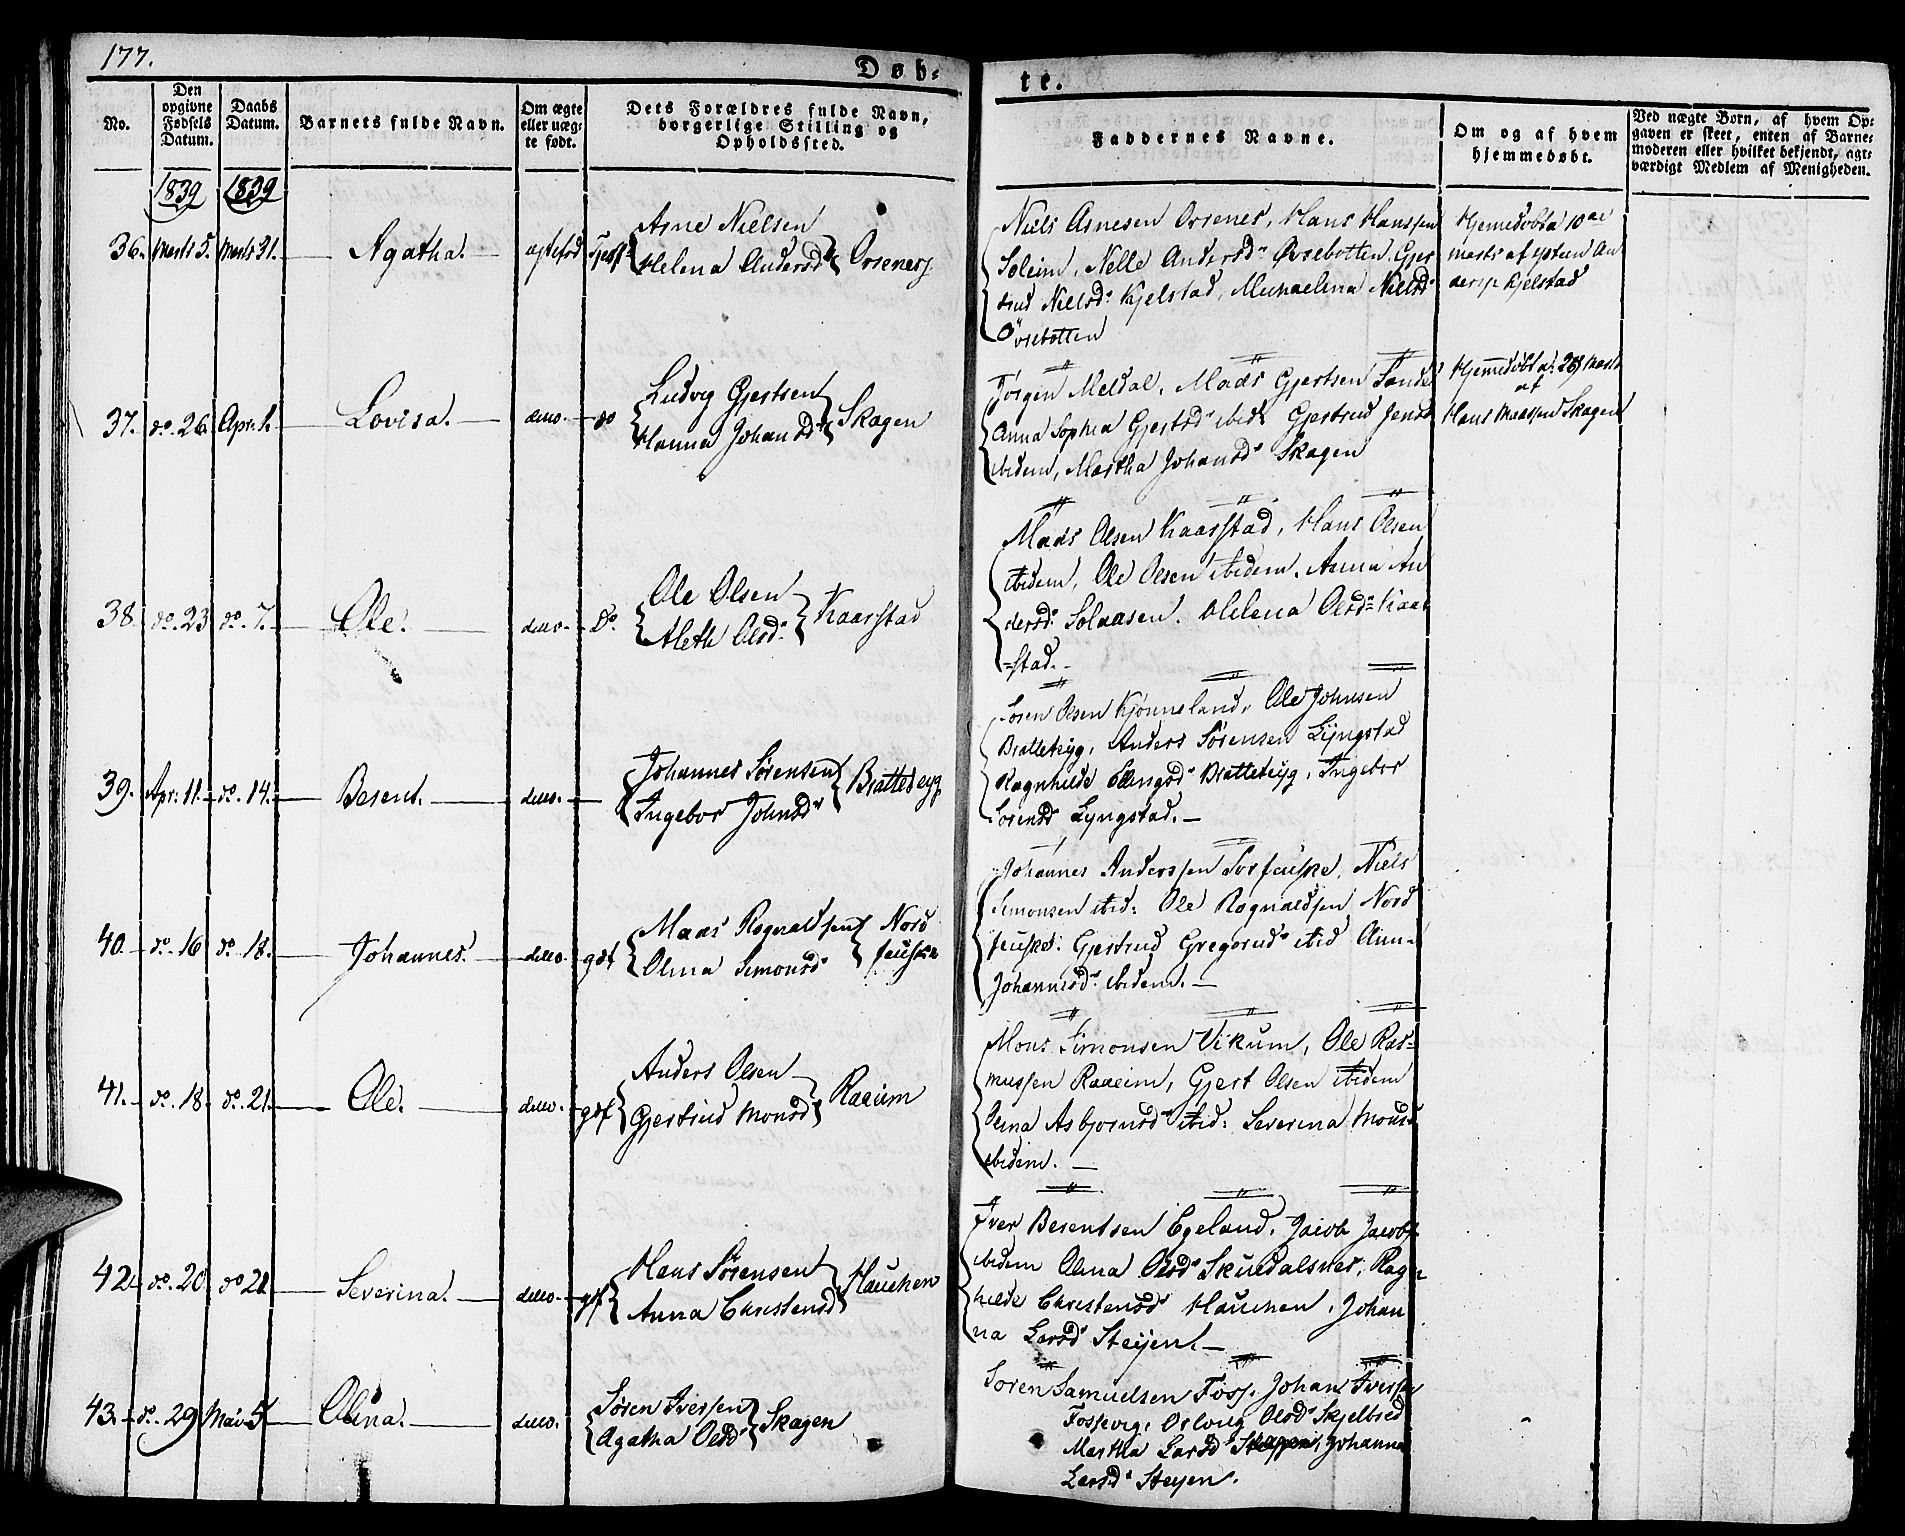 177.
Døb-
te.
No.
Den opgivne Fødsels Datum.
Daabs Datum.
Barnets fulde Navn.
Om ægte eller uæg-te født.
Dets Forældres fulde Navn, borgerlige Stilling og Opholdssted.
Faddernes Navne.
Om og af hvem hjemmedøbt.
Ved uægte Børn, af hvem Op-gaven er skeet, enten af Barne-moderen eller hvilket bekjendt, agt-værdigt Medlem af Menigheden.
1839 1839
36. Marts 5. Marts 31. Agatha. ægtefød
Arne Nielsen
Helena Andersdr
Orsenes
Niels Arnesen Orsenes, Hans Hanssen
Soleim, Nelle Andersdr Øvrebotten, Gjer
trud Nielsdr Kjelstad, Michaelina Nielsdr
Øvrebotten
Hjemmedøbt d 10de
Marts af Ysteen An
Kjelstad
37. do. 26. Apr. 1. Lovisa. ditto do
Ludvig Gjertsen
Hanna Johansdr
Skagen
Jørgen Meldal, Mads Gjertsen Sande
Anna Sophia Gjertsdr ibid: Gjertrud Jensd
ibidem, Martha Johansdr Skagen
Hjemmedøbt d. 28 Marts
af
Hans Maassen Skagen
38. do. 23 do. 7. Ole. ditto Do.
Ole Olsen
Aleth Olsdr
Kaarstad
Mads Olsen Kaarstad, Hans Olsen
ibidem, Ole Olsen ibidem. Anna An
dersdr Solaasen. Helena Olsdr Kaar
-stad.
39. Apr: 11. do. 14. Besent. ditto.
Johannes Sørensen
Ingebor Johnsdr
Bratteteyg
Søren Olsen Kjønnsland, Ole Johnsen
Bratteteyg, Anders Sørensen Lyngstad
Ragnhilde Bratteteyg, Ingebor
Sørensdr Lyngstad.
40. do. 16 do. 18. Johannes. ditto gdf
Maas Rognaldsen
Olina Simonsdr
Nord
feuske
Johannes Anderssen Sørfeuske, Niels
Simonsen ibid: Ole Rognaldsen Nord
feuske: Gjertrud Gregoriusdr ibid Ann-
Johannesdr ibidem.
41. do. 18. do. 21. Ole. ditto. gdf
Anders Olsen
Gjertrud Monsdr
Raaeim
Mons Simonsen Vikum, Ole Ras-
mussen Raaeim, Gjert Olsen ibidem
Olina Asbjørnsdr ibid: Severina Monsd
ibidem.
42. do. 20 do 21 Severina. ditto. gdf
Hans Sørensen
Anna Christensd
Hauchen
Iver Besentsen Egeland, Jacob Jacobs
ibidem Olina Olsdr Skuedalsnes, Rag-
hilde Christensdr Hauchen, Johan
na Larsdr Steijen.
43. do. 29 Mai 5. Olina. ditto.
Søren Iversen
Agatha Olsdr
Skagen
Søren Samuelsen Foss. Johan Iversen
Fossevig, Oslaug Olsdr Skjelbred
Martha Larsdr Johanna
Larsdr Steijen.